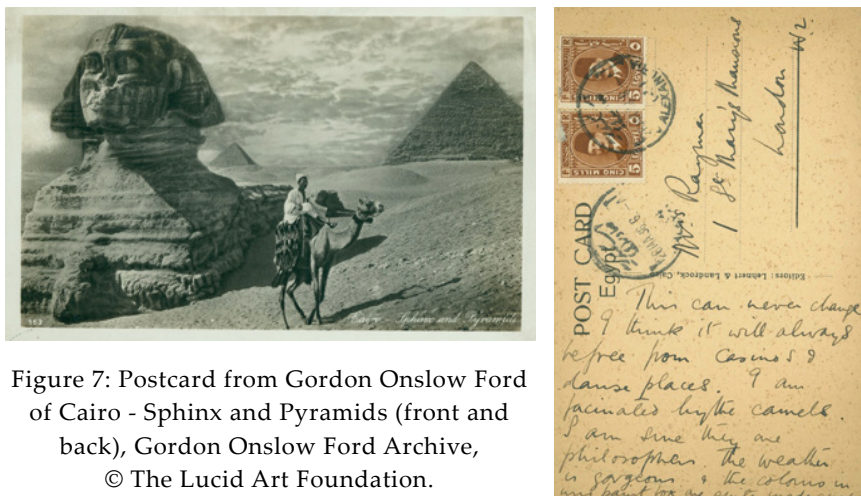 163
Cairo - Sphinx and Pyramids
Figure 7: Postcard from Gordon Onslow Ford
of Cairo - Sphinx and Pyramids (front and
back), Gordon Onslow Ford Archive,
© The Lucid Art Foundation.
5
CINQ MILLS
5
CINQ MILLS
ALEXA
POST CARD
Egypt
Miss Rayner
1 St Mary's Mansions
London W2.
Editors: Lehnert & Landrock, Cairo
This can never change
I think it will always
be free from Casinos &
danse places. I am
facinated by the camels.
I am sure they are
philosophers. The weather
is gorgeous & the colours in